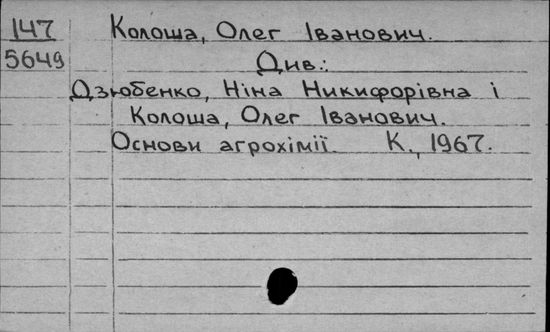 147 Колоша, Олег Іванович.
5649 Див.:
Дзюбенко, Ніна Никифорівна і
Колоша, Олег Іванович.
Основи агрохімії. К., 1967.